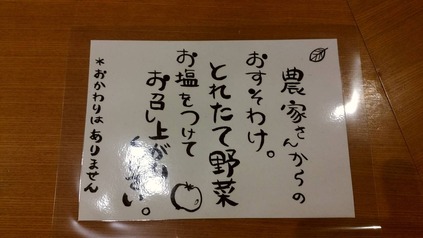 農家さんからの
おすそわけ。
とれたて野菜
お塩をつけて
お召し上がりください。
*おかわりはありません